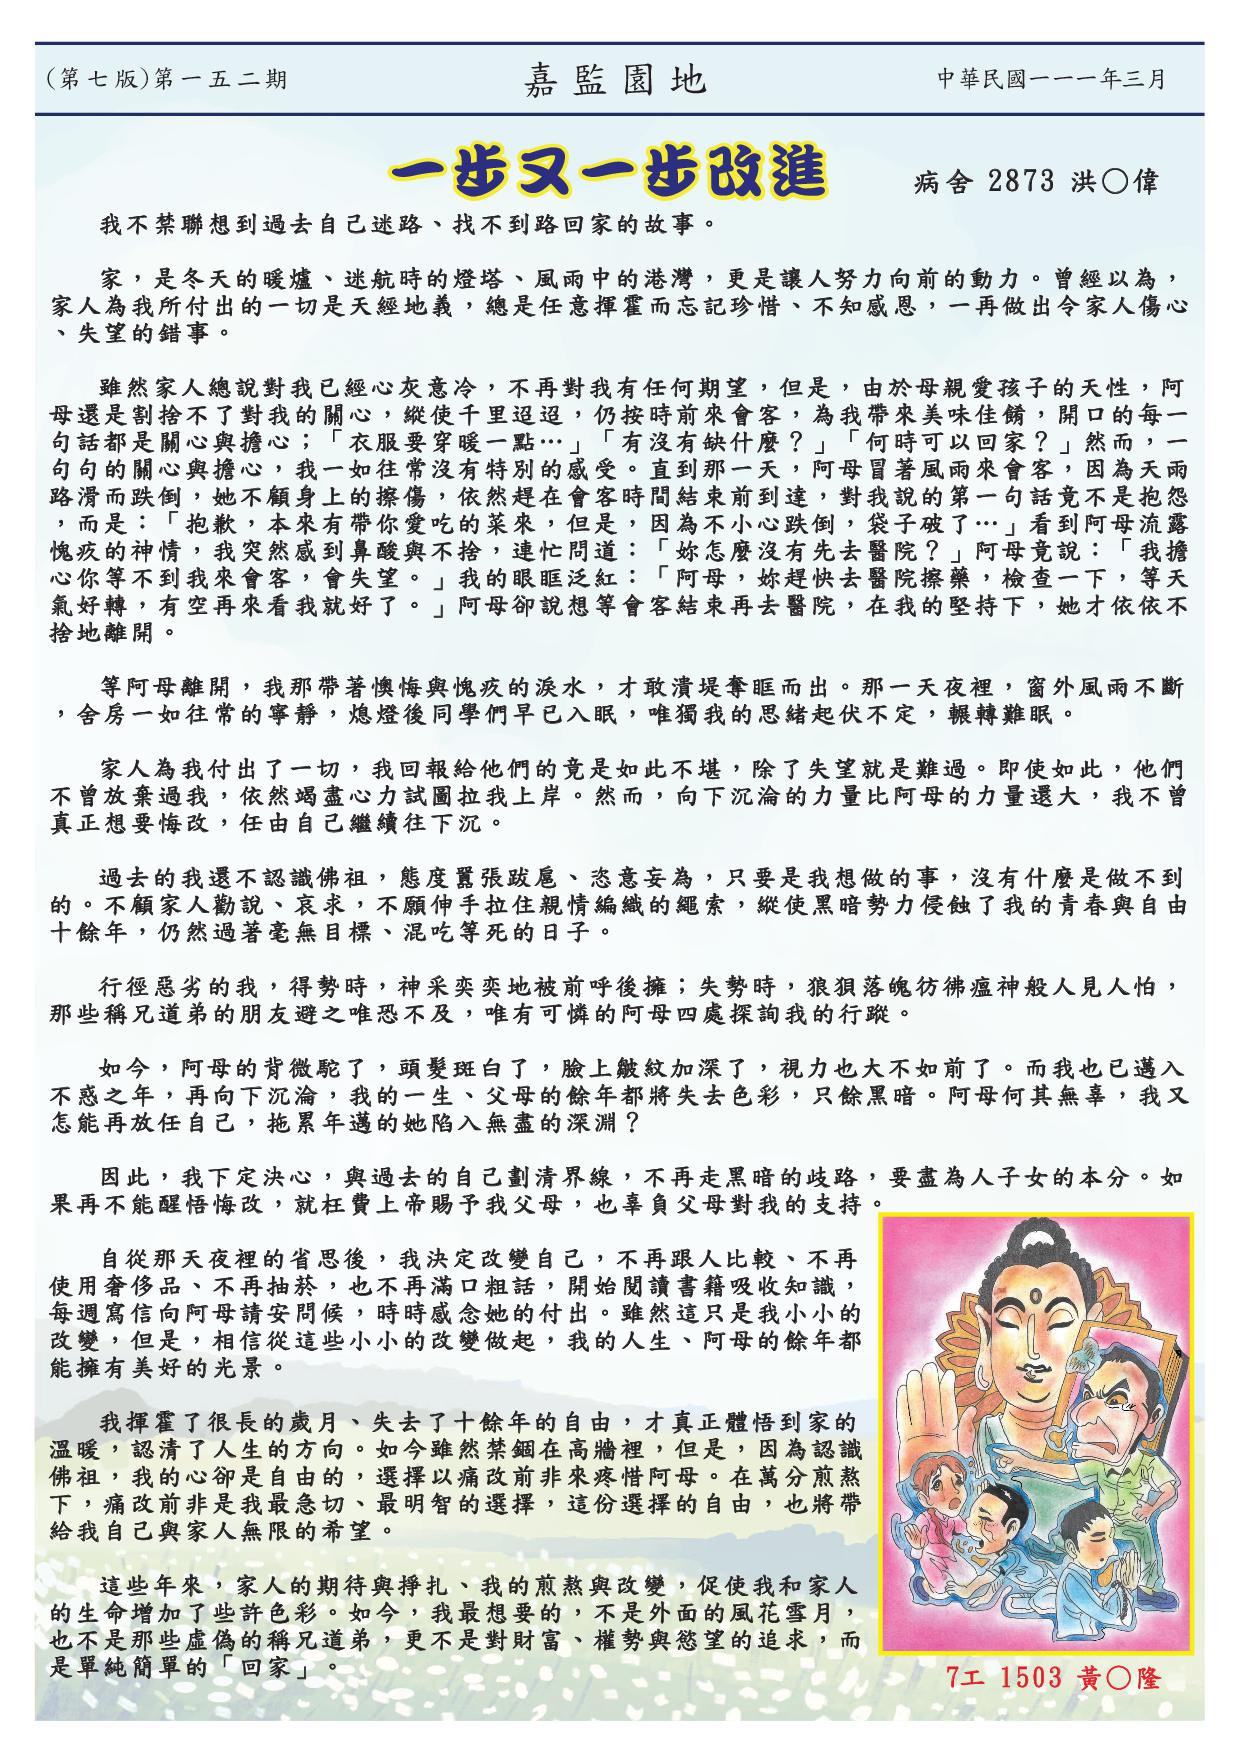 (第七版)第一五二期
嘉監園地
中華民國一一一年三月
一步又一步改進
病舍 2873 洪〇偉
我不禁聯想到過去自己迷路、找不到路回家的故事。
家，是冬天的暖爐、迷航時的燈塔、風雨中的港灣，更是讓人努力向前的動力。曾經以為，
家人為我所付出的一切是天經地義，總是任意揮霍而忘記珍惜、不知感恩，一再做出令家人傷心
、失望的錯事。
雖然家人總說對我已經心灰意冷，不再對我有任何期望，但是，由於母親愛孩子的天性，阿
母還是割捨不了對我的關心，縱使千里迢迢，仍按時前來會客，為我帶來美味佳餚，開口的每一
句話都是關心與擔心；「衣服要穿暖一點…」「有沒有缺什麼？」「何時可以回家？」然而，一
句句的關心與擔心，我一如往常沒有特別的感受。直到那一天，阿母冒著風雨來會客，因為天雨
路滑而跌倒，她不顧身上的擦傷，依然趕在會客時間結束前到達，對我說的第一句話竟不是抱怨
，而是：「抱歉，本來有帶你愛吃的菜來，但是，因為不小心跌倒，袋子破了…」看到阿母流露
愧疚的神情，我突然感到鼻酸與不捨，連忙問道：「妳怎麼沒有先去醫院？」阿母竟說：「我擔
心你等不到我來會客，會失望。」我的眼眶泛紅：「阿母，妳趕快去醫院擦藥，檢查一下，等天
氣好轉，有空再來看我就好了。」阿母卻說想等會客結束再去醫院，在我的堅持下，她才依依不
捨地離開。
等阿母離開，我那帶著懊悔與愧疚的淚水，才敢潰堤奪眶而出。那一天夜裡，窗外風雨不斷
，舍房一如往常的寧靜，熄燈後同學們早已入眠，唯獨我的思緒起伏不定，輾轉難眠。
家人為我付出了一切，我回報給他們的竟是如此不堪，除了失望就是難過。即使如此，他們
不曾放棄過我，依然竭盡心力試圖拉我上岸。然而，向下沉淪的力量比阿母的力量還大，我不曾
真正想要悔改，任由自己繼續往下沉。
過去的我還不認識佛祖，態度囂張跋扈、恣意妄為，只要是我想做的事，沒有什麼是做不到
的。不顧家人勸說、哀求，不願伸手拉住親情編織的繩索，縱使黑暗勢力侵蝕了我的青春與自由
十餘年，仍然過著毫無目標、混吃等死的日子。
行徑惡劣的我，得勢時，神采奕奕地被前呼後擁；失勢時，狼狽落魄彷彿瘟神般人見人怕，
那些稱兄道弟的朋友避之唯恐不及，唯有可憐的阿母四處探詢我的行蹤。
如今，阿母的背微駝了，頭髮斑白了，臉上皺紋加深了，視力也大不如前了。而我也已邁入
不惑之年，再向下沉淪，我的一生、父母的餘年都將失去色彩，只餘黑暗。阿母何其無辜，我又
怎能再放任自己，拖累年邁的她陷入無盡的深淵？
因此，我下定決心，與過去的自己劃清界線，不再走黑暗的歧路，要盡為人子女的本分。如
果再不能醒悟悔改，就枉費上帝賜予我父母，也辜負父母對我的支持。
自從那天夜裡的省思後，我決定改變自己，不再跟人比較、不再
使用奢侈品、不再抽菸，也不再滿口粗話，開始閱讀書籍吸收知識，
每週寫信向阿母請安問候，時時感念她的付出。雖然這只是我小小的
改變，但是，相信從這些小小的改變做起，我的人生、阿母的餘年都
能擁有美好的光景。
我揮霍了很長的歲月、失去了十餘年的自由，才真正體悟到家的
溫暖，認清了人生的方向。如今雖然禁錮在高牆裡，但是，因為認識
佛祖，我的心卻是自由的，選擇以痛改前非來疼惜阿母。在萬分煎熬
下，痛改前非是我最急切、最明智的選擇，這份選擇的自由，也將帶
給我自己與家人無限的希望。
這些年來，家人的期待與掙扎、我的煎熬與改變，促使我和家人
的生命增加了些許色彩。如今，我最想要的，不是外面的風花雪月，
也不是那些虛偽的稱兄道弟，更不是對財富、權勢與慾望的追求，而
是單純簡單的「回家」。
7工 1503 黃〇隆